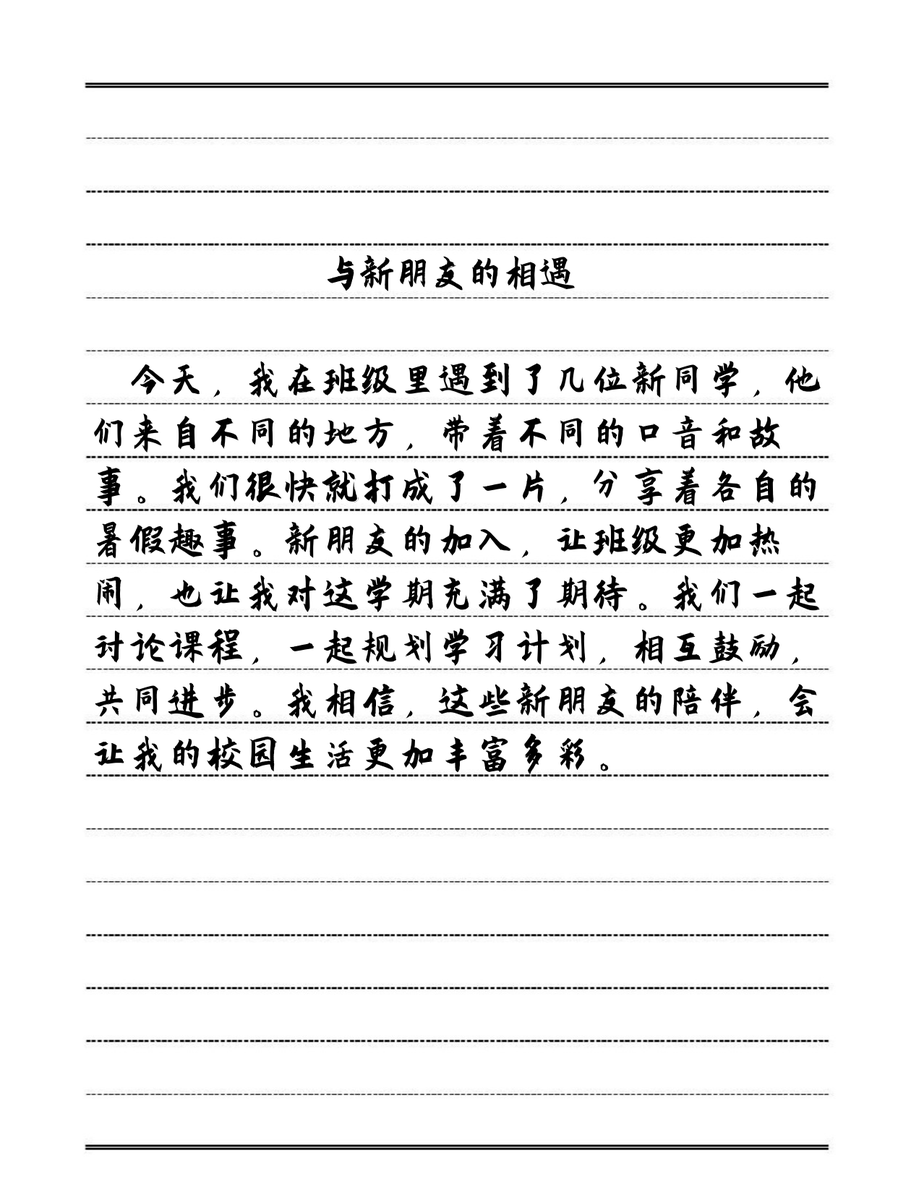 与新朋友的相遇
今天，我在班级里遇到了几位新同学，他
们来自不同的地方，带着不同的口音和故
事。我们很快就打成了一片，分享着各自的
暑假趣事。新朋友的加入，让班级更加热
闹，也让我对这学期充满了期待。我们一起
讨论课程，一起规划学习计划，相互鼓励，
共同进步。我相信，这些新朋友的陪伴，会
让我的校园生活更加丰富多彩。